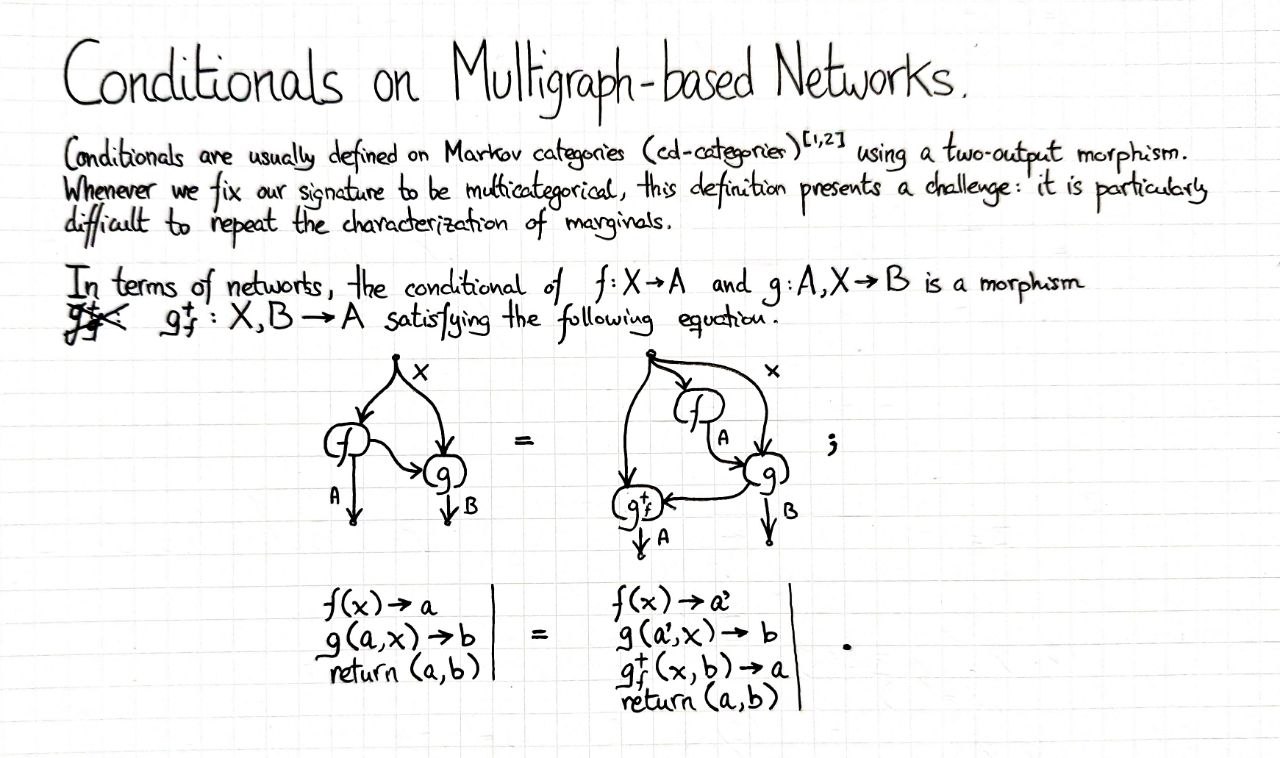 Conditionals on Multigraph-based Networks.
Conditionals are usually defined on Markov categories (cd-categories)[1,2] using a two-output morphism.
Whenever we fix our signature to be multicategorical, this definition presents a challenge: it is particularly
difficult to repeat the characterization of marginals.
In terms of networks, the conditional of f: X → A and g: A, X → B is a morphism
g†f : X, B → A satisfying the following equation.
X
f
A
g
B
=
x
f
A
g
B
g†f
A
;
f(x) → a
g(a,x) → b
return (a,b)
=
f(x) → a'
g(a',x) → b
g†f (x,b) → a
return (a,b)
.